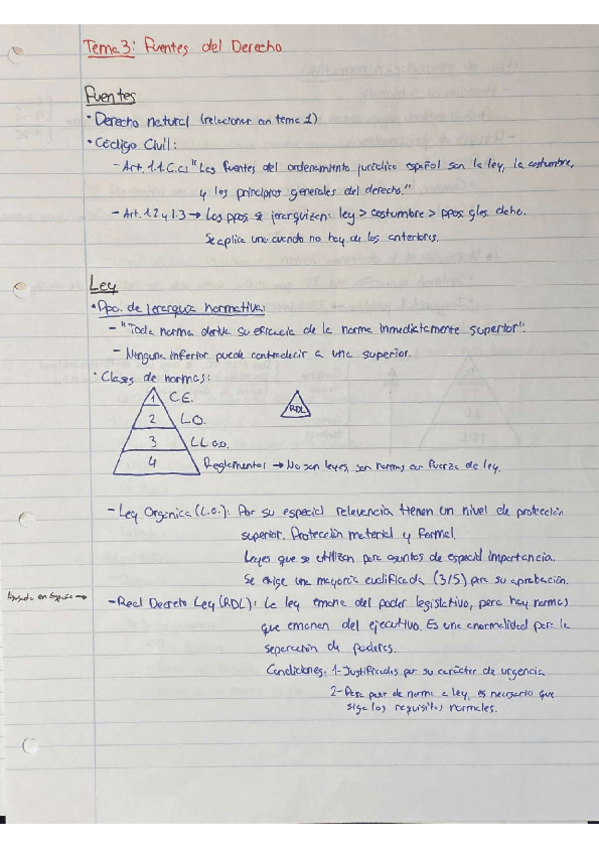 Tema 3: Fuentes del Derecho
Fuentes
• Derecho natural (relacionar con tema 1)
• Código Civil:
- Art. 1.1 C.c: "Las fuentes del ordenamiento jurídico español son la ley, la costumbre,
y los principios generales del derecho."
- Art. 1.2 y 1.3 → Los ppos se jerarquizan: ley > costumbre > ppos gles dcho.
Se aplica uno cuando no hay de los anteriores.
Ley
• Ppo. de jerarquía normativa:
- "Toda norma deriva su eficacia de la norma inmediatamente superior".
- Ninguna inferior puede contradecir a una superior.
• Clases de normas:
1 C.E.
RDL
2 L.O.
3 LL.OO.
4 Reglamentos → No son leyes, son normas con fuerza de ley.
- Ley Orgánica (L.O.): Por su especial relevancia tienen un nivel de protección
superior. Protección material y formal.
Leyes que se utilizan para asuntos de especial importancia.
Se exige una mayoría cualificada (3/5) para su aprobación.
- Real Decreto Ley (RDL): La ley emana del poder legislativo, pero hay normas
que emanan del ejecutivo. Es una anormalidad para la
separación de poderes.
Condiciones: 1- Justificadas por su carácter de urgencia
2- Para pasar de norma a ley, es necesario que
siga los requisitos normales.